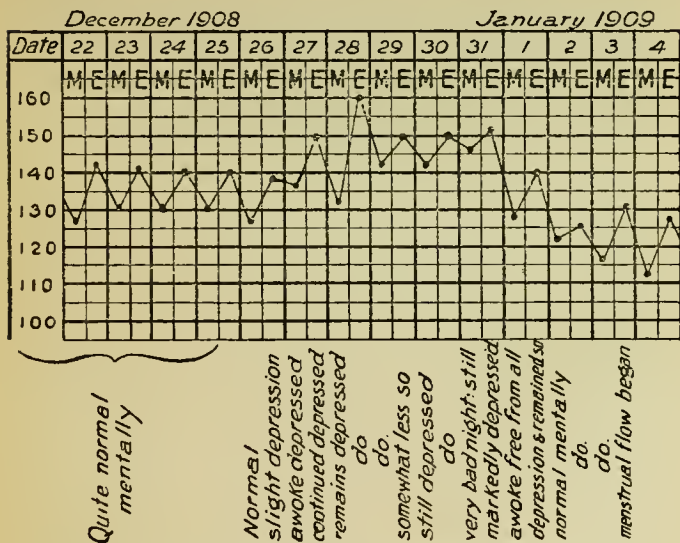 December 1908 January 1909
Date 22 23 24 25 26 27 28 29 30 31 1 2 3 4
M E M E M E M E M E M E M E M E M E M E M E M E M E M E
160
150
140
130
120
110
100
Quite normal
mentally
Normal
slight depression
awoke depressed
continued depressed
remains depressed
do
do.
somewhat less so
still depressed
do
very bad night: still
markedly depressed
awoke free from all
depression & remained so
normal mentally
do.
do.
menstrual flow began